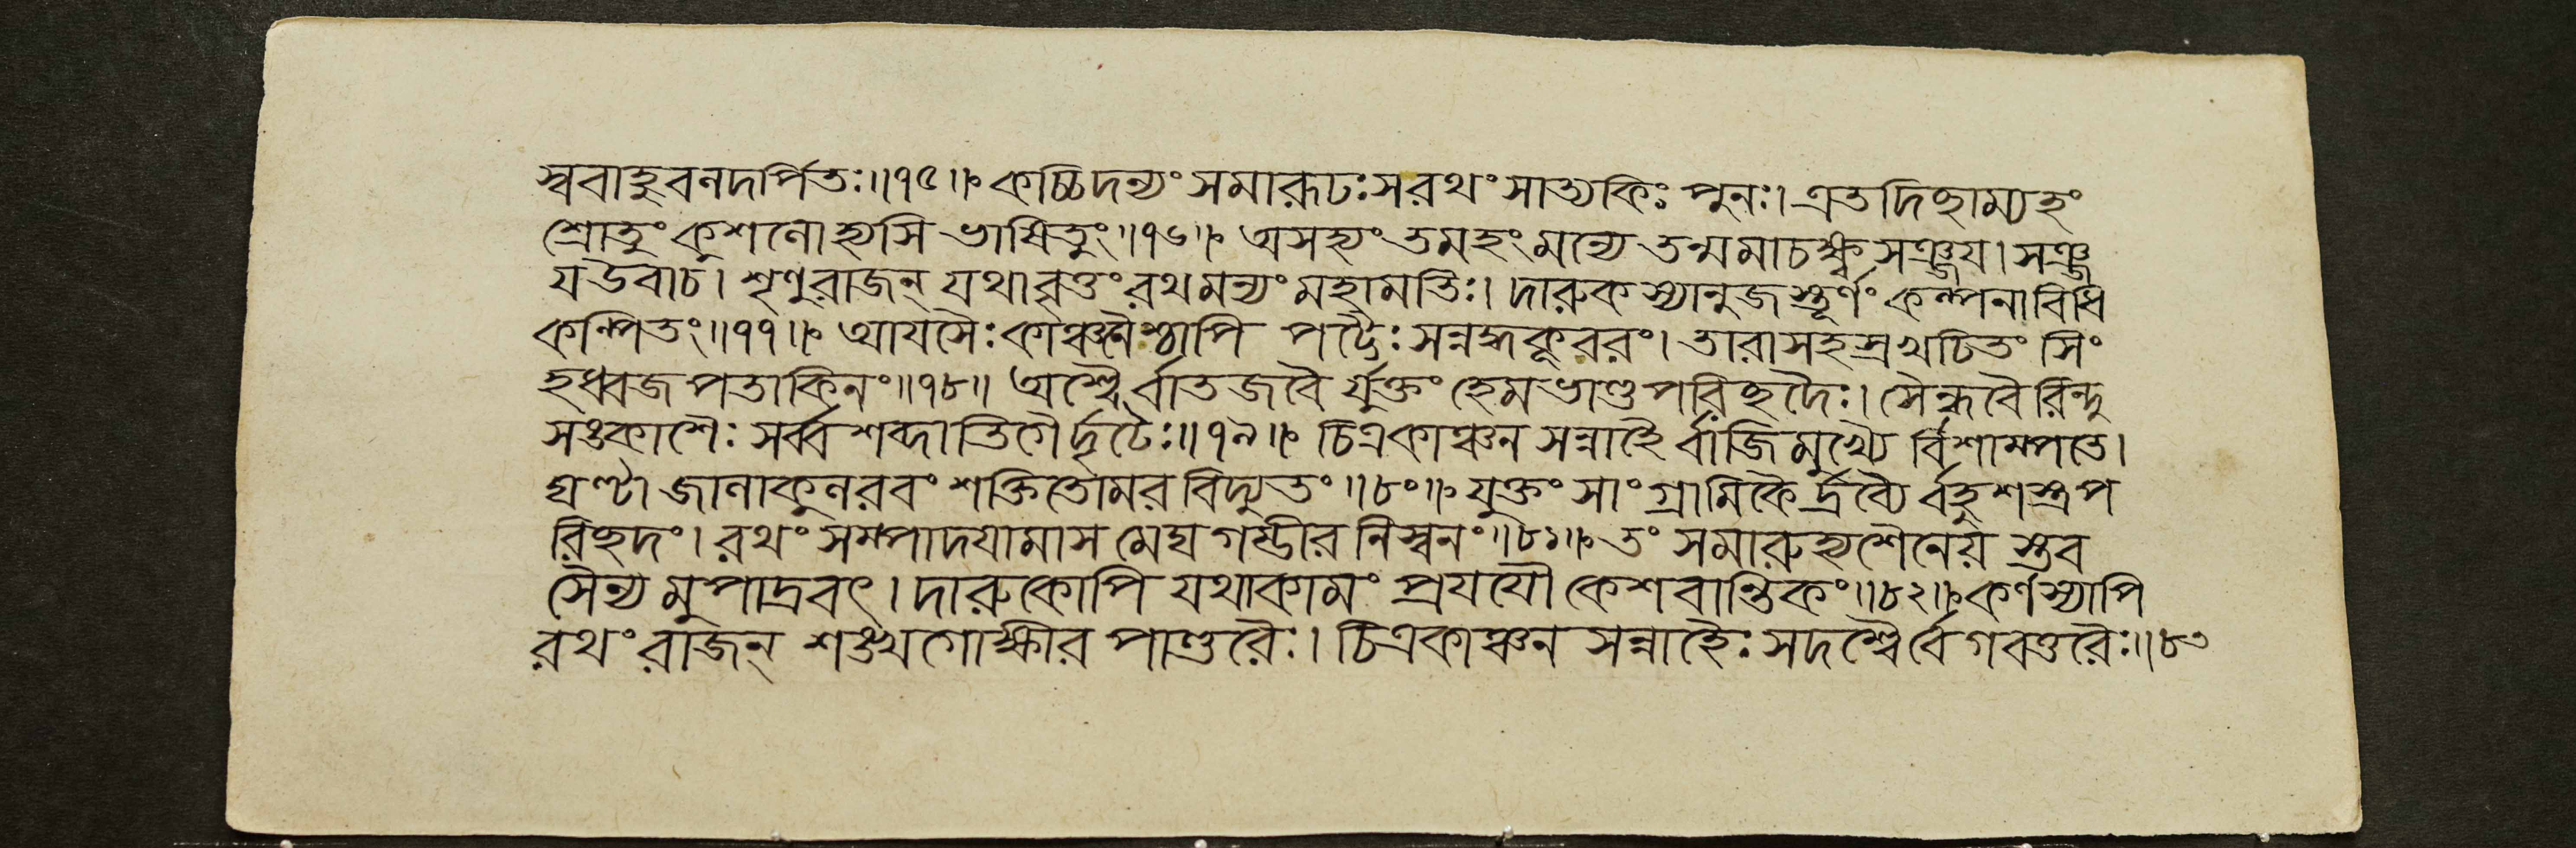 স্ববাহুবলদর্পিতঃ॥৭৫॥ কচ্চিদন্যং সমারূঢঃ সরথং সাত্যকিঃ পুনঃ। এতদিচ্ছাম্যহং
শ্রোতুং কুশলোহ্যসি ভাষিতুং॥৭৬॥ অসহ্যং তমহং মন্যে তন্মমাচক্ষ্ব সঞ্জয। সঞ্জ
য উবাচ। শৃণু রাজন্ যথাবৃত্তং রথমন্যং মহামতিঃ। দারুকস্যানুজস্তূর্ণং কল্পনাবিধি
কল্পিতং॥৭৭॥ আযসৈঃ কাঞ্চনৈশ্চাপি পট্টৈঃ সন্নদ্ধকূবরং। তারাসহস্রখচিতং সিং
হধ্বজপতাকিনং॥৭৮॥ অশ্বৈর্বাতজবৈর্যুক্তং হেমভাণ্ডপরিচ্ছদৈঃ। সৈন্ধবৈরিন্দু
সঙ্কাশৈঃ সর্ব্বশব্দাতিগৈর্দৃঢৈঃ॥৭৯॥ চিত্রকাঞ্চন সন্নাহৈর্বাজিমুখ্যৈর্বিশাম্পতে।
ঘণ্টাজালাকুলরবং শক্তিতোমরবিদ্যুতং॥৮০॥ যুক্তং সাংগ্রামিকৈর্দ্রব্যৈর্বহুশস্ত্রপ
রিচ্ছদং। রথং সম্পাদযামাস মেঘগম্ভীরনিস্বনং॥৮১॥ তং সমারুহ্য শৈনেয়স্তব
সৈন্যমুপাদ্রবৎ। দারুকোপি যথাকামং প্রযযৌ কেশবান্তিকং॥৮২॥ কর্ণস্যাপি
রথং রাজন্ শঙ্খগোক্ষীরপাণ্ডুরৈঃ। চিত্রকাঞ্চন সন্নাহৈঃ সদশ্বৈর্বেগবত্তরৈঃ॥৮৩